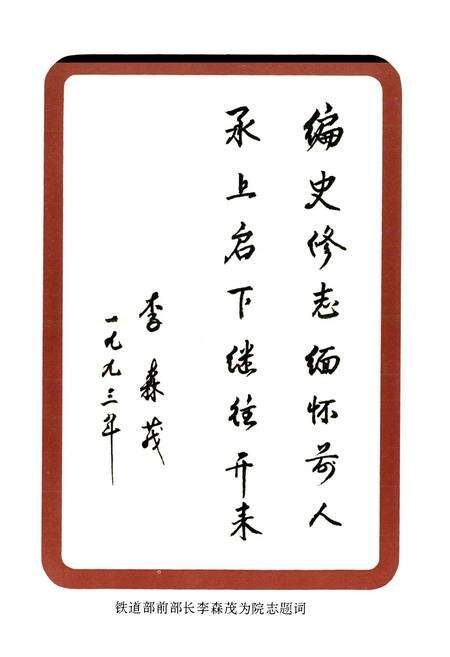 编史修志缅怀前人
承上启下继往开来
李森茂
一九九三年
铁道部前部长李森茂为院志题词